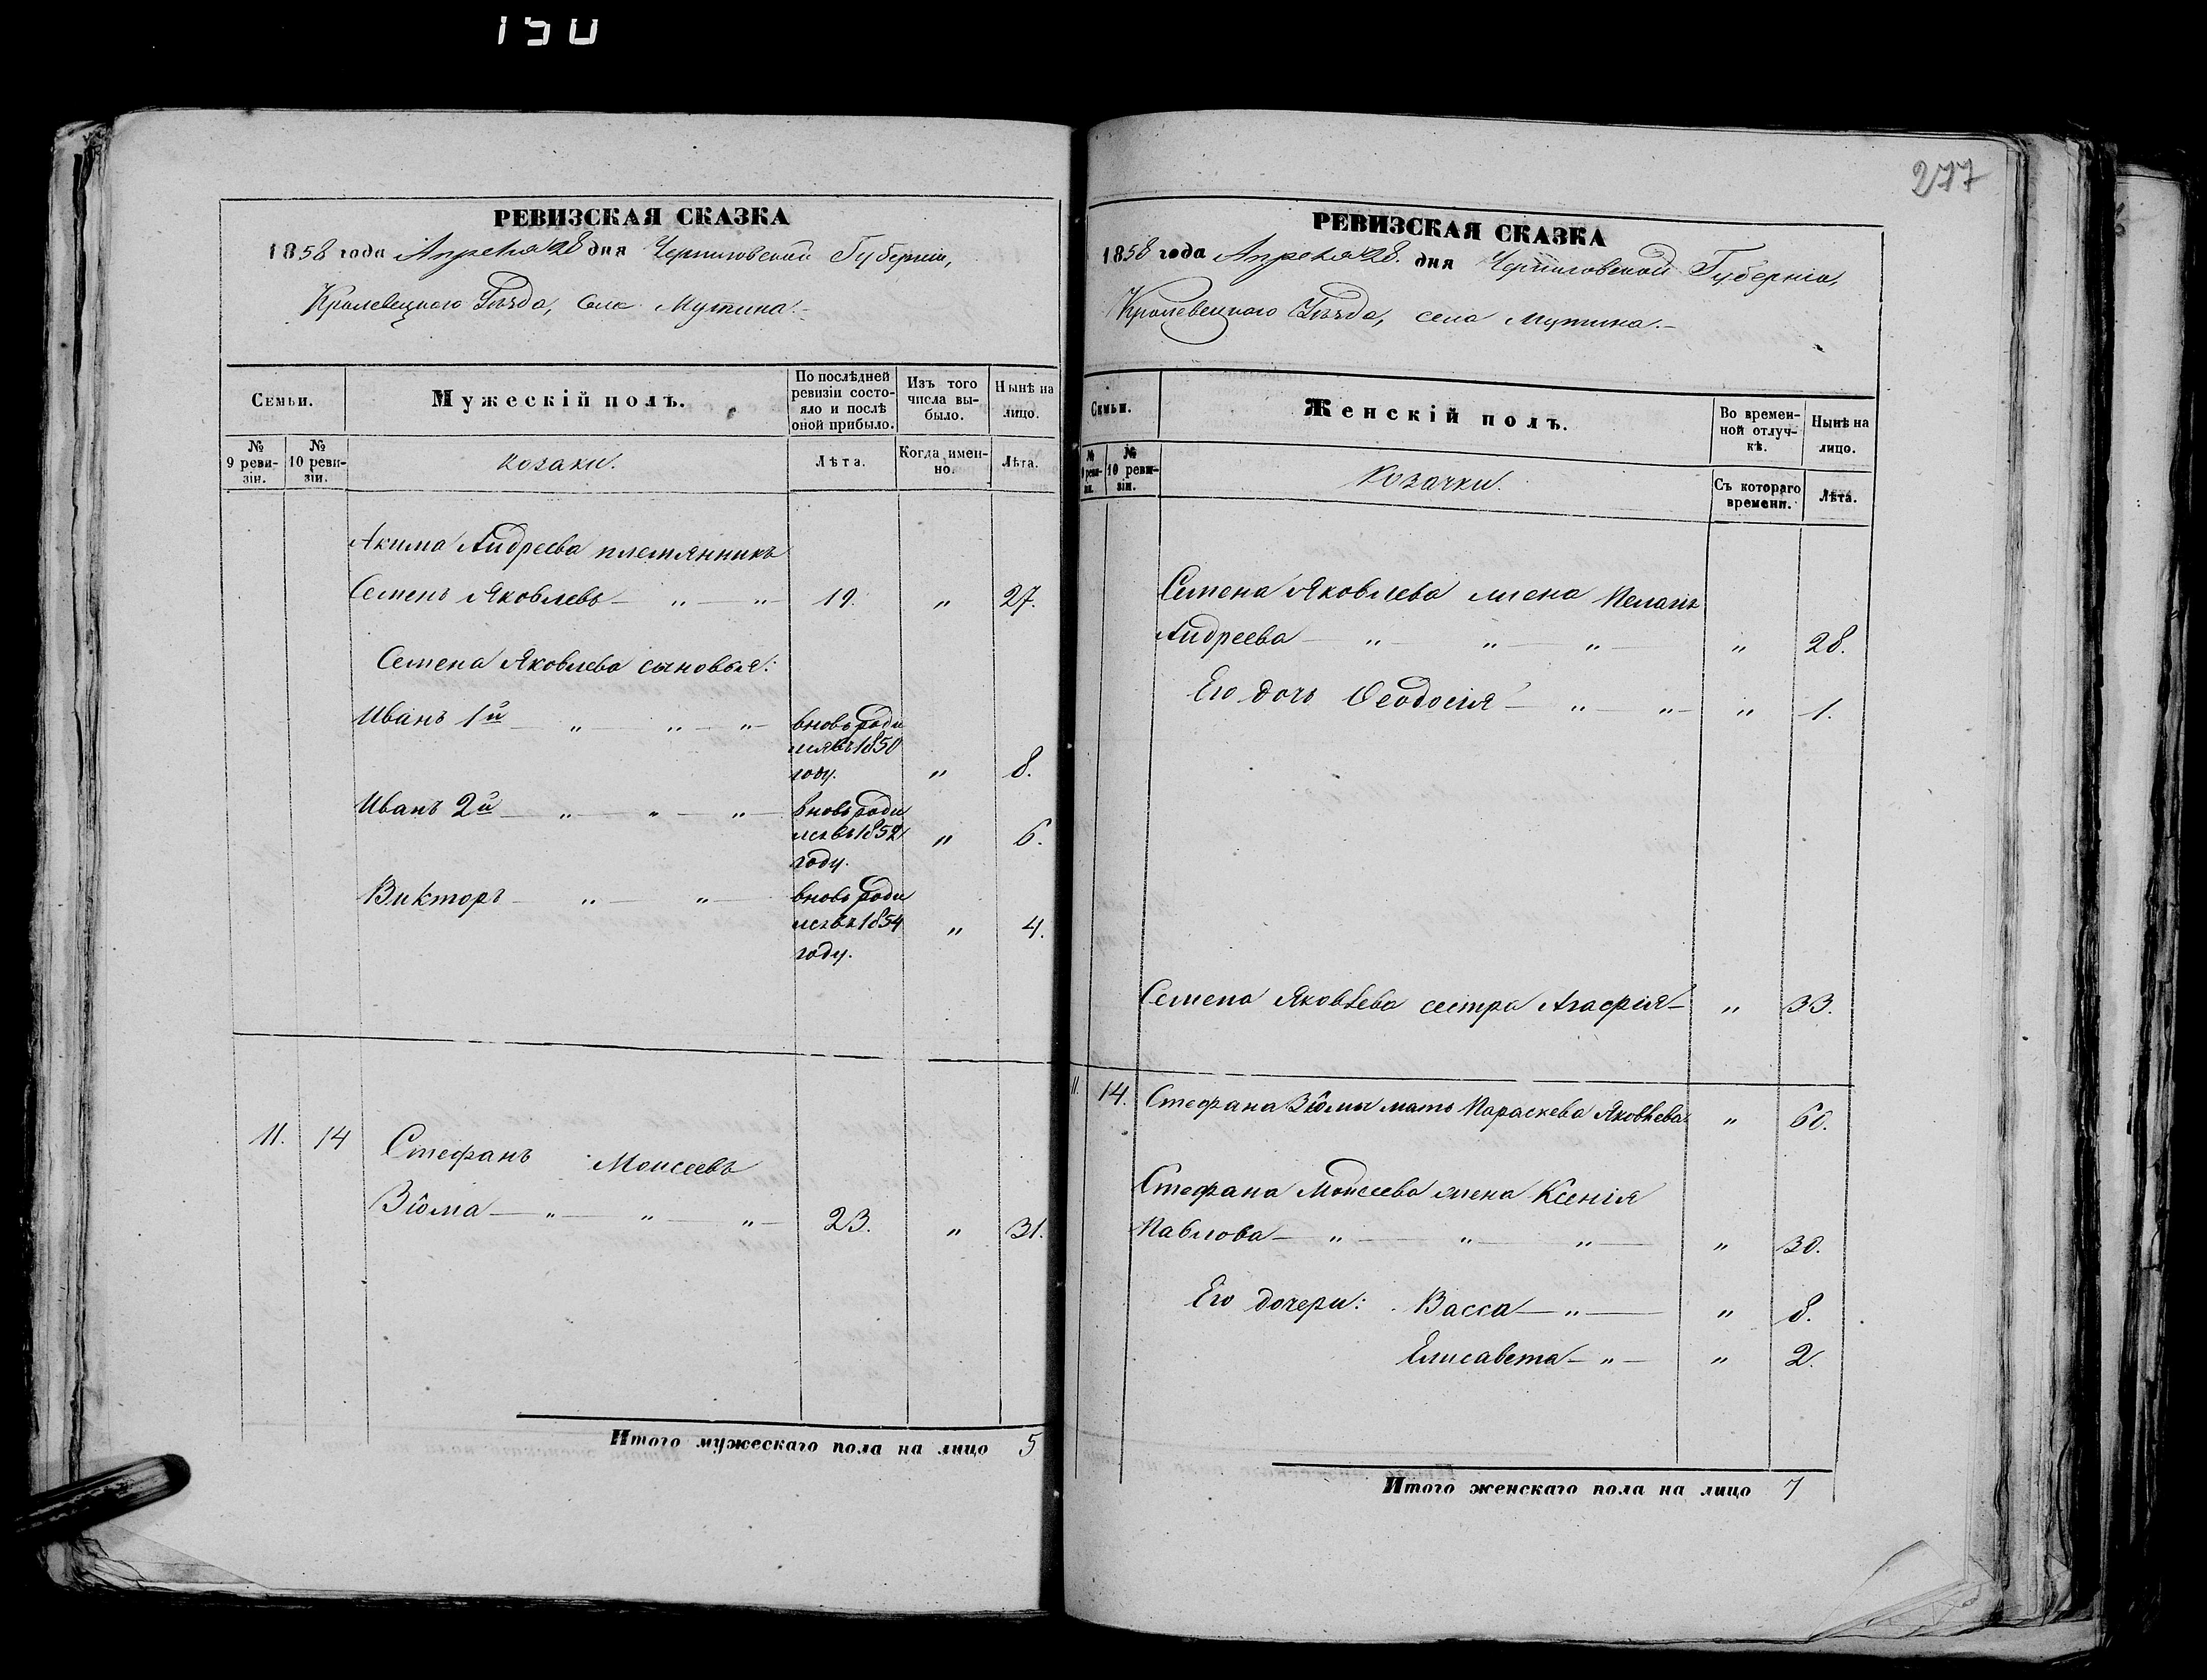 150
277
РЕВИЗСКАЯ СКАЗКА
1858 года Апреля 28 дня Черниговской Губерніи,
Кролевецкого Уѣзда, села Мутина.
Семьи.
Мужескій полъ.
По послѣдней ревизіи состояло и послѣ оной прибыло.
Изъ того числа выбыло.
Нынѣ на лицо.
№ 9 ревизіи.
№ 10 ревизіи.
козаки.
Лѣта.
Когда именно.
Лѣта.
Акима Андреева племянникъ
Семенъ Яковлевъ — „ — „ 19. „ 27.
Семена Яковлева сыновья:
Иванъ 1й — „ — „ — „ — вновь роди
лся въ 1850
году. „ 8.
Иванъ 2й — „ — „ — „ — вновь роди
лсявъ 1852 „ 6.
году.
Викторъ — „ — „ — вновь роди
лсявъ 1854 „ 4.
году.
11. 14 Стефанъ Моисеевъ
Зюма — „ — „ — „ — 23. „ 31.
Итого мужескаго пола на лицо 5
РЕВИЗСКАЯ СКАЗКА
1858 года Апреля 28. дня Черниговской Губерніи,
Кролевецкого Уѣзда, села Мутина.
Семьи.
Женскій полъ.
Во временной отлучкѣ.
Нынѣ на лицо.
№ 9 ревизіи.
№ 10 ревизіи.
Козачки.
Съ котораго времени.
Лѣта.
Семена Яковлева жена
Андреева — „ — „ — „ — „ 28.
Его дочь Феодосія — „ — „ — „ 1.
Семена Яковлева сестра Агафія — „ 33.
11. 14. Стефана Зюмы мать Параскева Яковлева „ 60.
Стефана Моисеева жена Ксенія
Павлова — „ — „ — „ — „ 30.
Его дочери: Васса — „ — „ 8.
Елисавета — „ — „ 2.
Итого женскаго пола на лицо 7